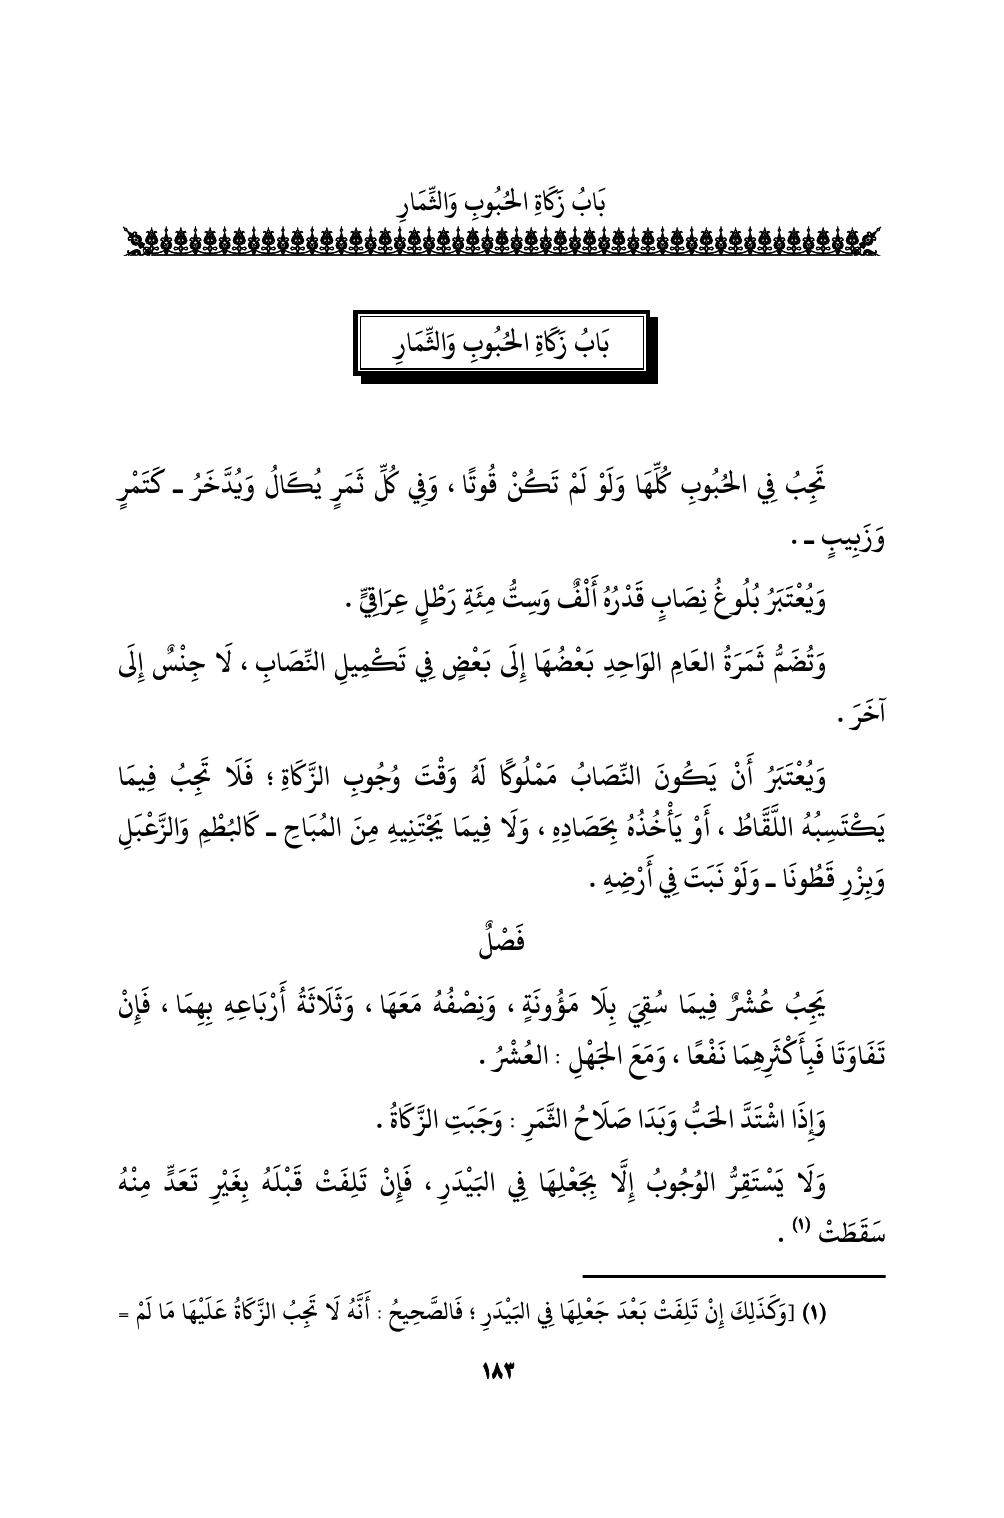 بَابُ زَكَاةِ الحُبُوبِ وَالثِّمَارِ
بَابُ زَكَاةِ الحُبُوبِ وَالثِّمَارِ
تَجِبُ فِي الحُبُوبِ كُلِّهَا وَلَوْ لَمْ تَكُنْ قُوتًا ، وَفِي كُلِّ ثَمَرٍ يُكَالُ وَيُدَّخَرُ ـ كَتَمْرٍ
وَزَبِيبٍ ـ .
وَيُعْتَبَرُ بُلُوغُ نِصَابٍ قَدْرُهُ أَلْفٌ وَسِتُّ مِئَةِ رَطْلٍ عِرَاقِيٍّ .
وَتُضَمُّ ثَمَرَةُ العَامِ الوَاحِدِ بَعْضُهَا إِلَى بَعْضٍ فِي تَكْمِيلِ النِّصَابِ ، لَا جِنْسٌ إِلَى
آخَرَ .
وَيُعْتَبَرُ أَنْ يَكُونَ النِّصَابُ مَمْلُوكًا لَهُ وَقْتَ وُجُوبِ الزَّكَاةِ ؛ فَلَا تَجِبُ فِيمَا
يَكْتَسِبُهُ اللَّقَّاطُ ، أَوْ يَأْخُذُهُ بِحَصَادِهِ ، وَلَا فِيمَا يَجْتَنِيهِ مِنَ المُبَاحِ ـ كَالبُطْمِ وَالزَّعْبَلِ
وَبِزْرِ قَطُونَا ـ وَلَوْ نَبَتَ فِي أَرْضِهِ .
فَصْلٌ
يَجِبُ عُشْرٌ فِيمَا سُقِيَ بِلَا مَؤُونَةٍ ، وَنِصْفُهُ مَعَهَا ، وَثَلَاثَةُ أَرْبَاعِهِ بِهِمَا ، فَإِنْ
تَفَاوَتَا فَبِأَكْثَرِهِمَا نَفْعًا ، وَمَعَ الجَهْلِ : العُشْرُ .
وَإِذَا اشْتَدَّ الحَبُّ وَبَدَا صَلَاحُ الثَّمَرِ : وَجَبَتِ الزَّكَاةُ .
وَلَا يَسْتَقِرُّ الوُجُوبُ إِلَّا بِجَعْلِهَا فِي البَيْدَرِ ، فَإِنْ تَلِفَتْ قَبْلَهُ بِغَيْرِ تَعَدٍّ مِنْهُ
سَقَطَتْ (١) .
(١) [وَكَذَلِكَ إِنْ تَلِفَتْ بَعْدَ جَعْلِهَا فِي البَيْدَرِ ؛ فَالصَّحِيحُ : أَنَّهُ لَا تَجِبُ الزَّكَاةُ عَلَيْهَا مَا لَمْ =
١٨٣